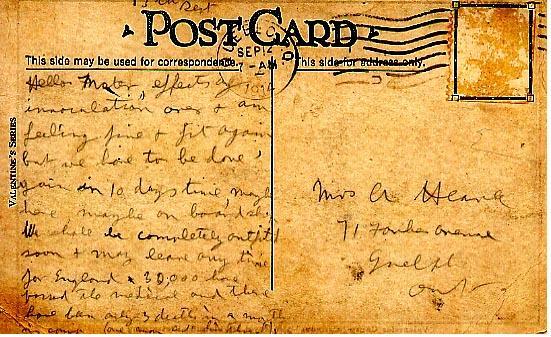 Sept
POST CARD
SEP 12
7-AM
1914
This side may be used for correspondence.
This side for address only.
VALENTINE'S SERIES
Hello Mater, effects of
innoculation over & am
feeling fine & fit again
but we have to be done
gain in 10 days time, maybe
here, maybe on boardship
We shall be completely outfitted
soon & may leave any time
for England & 30,000 have
passed the medical and there
have been only 3 deaths in a month
in camp (one man
Mrs A
71 avenue
Guelph
Ont